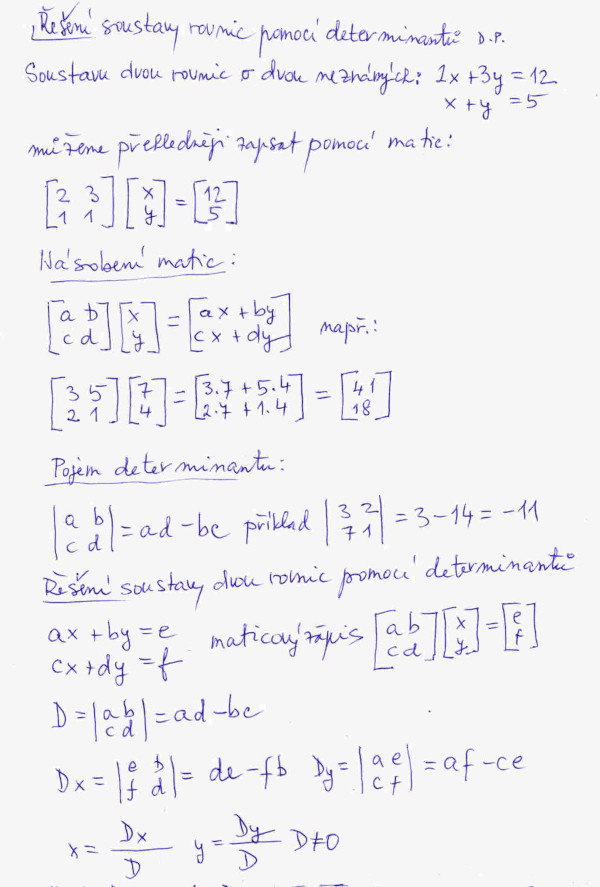 Řešení soustavy rovnic pomocí determinantů D.P.
Soustavu dvou rovnic o dvou neznámých: 2x + 3y = 12
x + y = 5
můžeme přehledněji zapsat pomocí matic:
[2 3] [x] = [12]
[1 1] [y] [5]
Násobení matic:
[a b] [x] = [ax + by]
[c d] [y] [cx + dy] např.:
[3 5] [7] = [3.7 + 5.4] = [41]
[2 1] [4] [2.7 + 1.4] [18]
Pojem determinantu:
|a b| = ad - bc příklad |3 2| = 3 - 14 = -11
|c d| |7 1|
Řešení soustavy dvou rovnic pomocí determinantů
ax + by = e
cx + dy = f maticový zápis [a b] [x] = [e]
[c d] [y] [f]
D = |a b| = ad - bc
|c d|
Dx = |e b| = de - fb Dy = |a e| = af - ce
|f d| |c f|
x = Dx/D y = Dy/D D ≠ 0